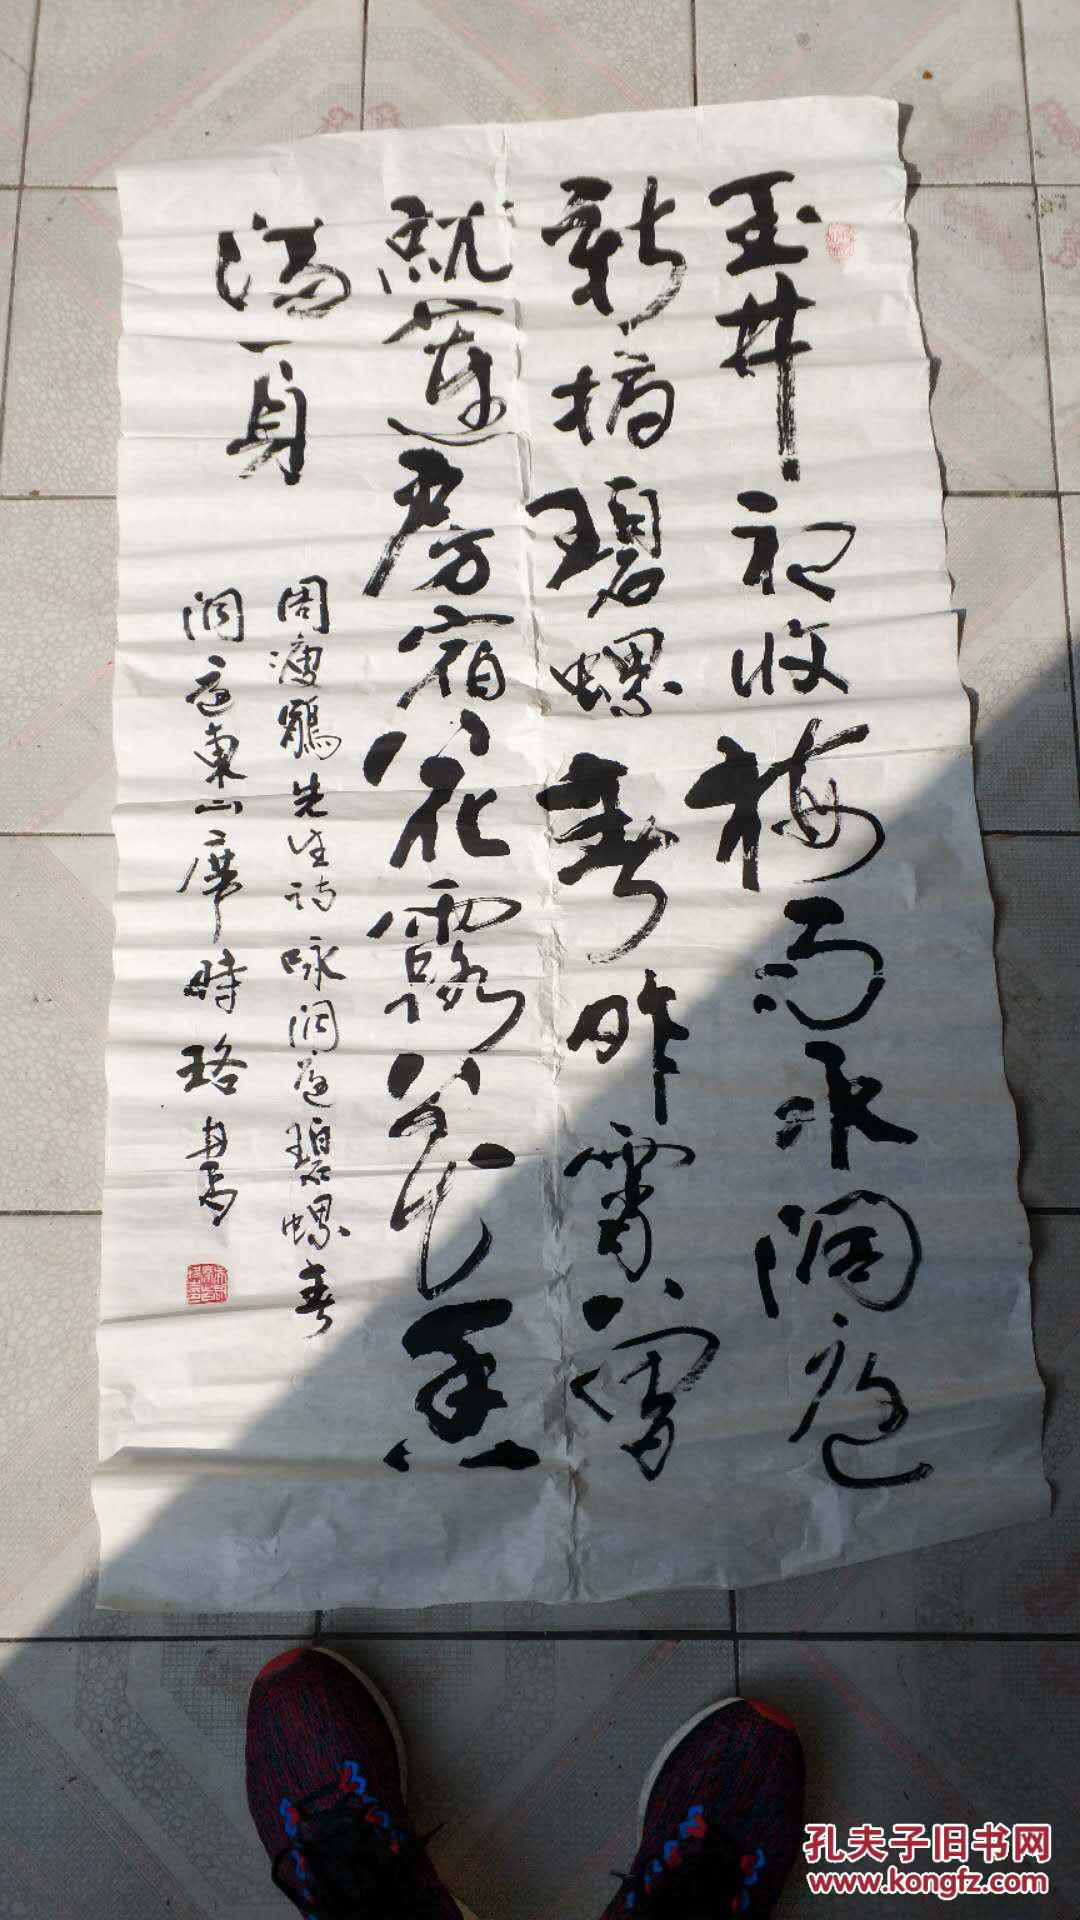 玉井初收梅雨水洞庭
新摘碧螺春昨宵曾
就蓮房宿花露花香
滿一身
周瘦鵑先生诗咏洞庭碧螺春
洞庭東山席時珞書
孔夫子旧书网
www.kongfz.com